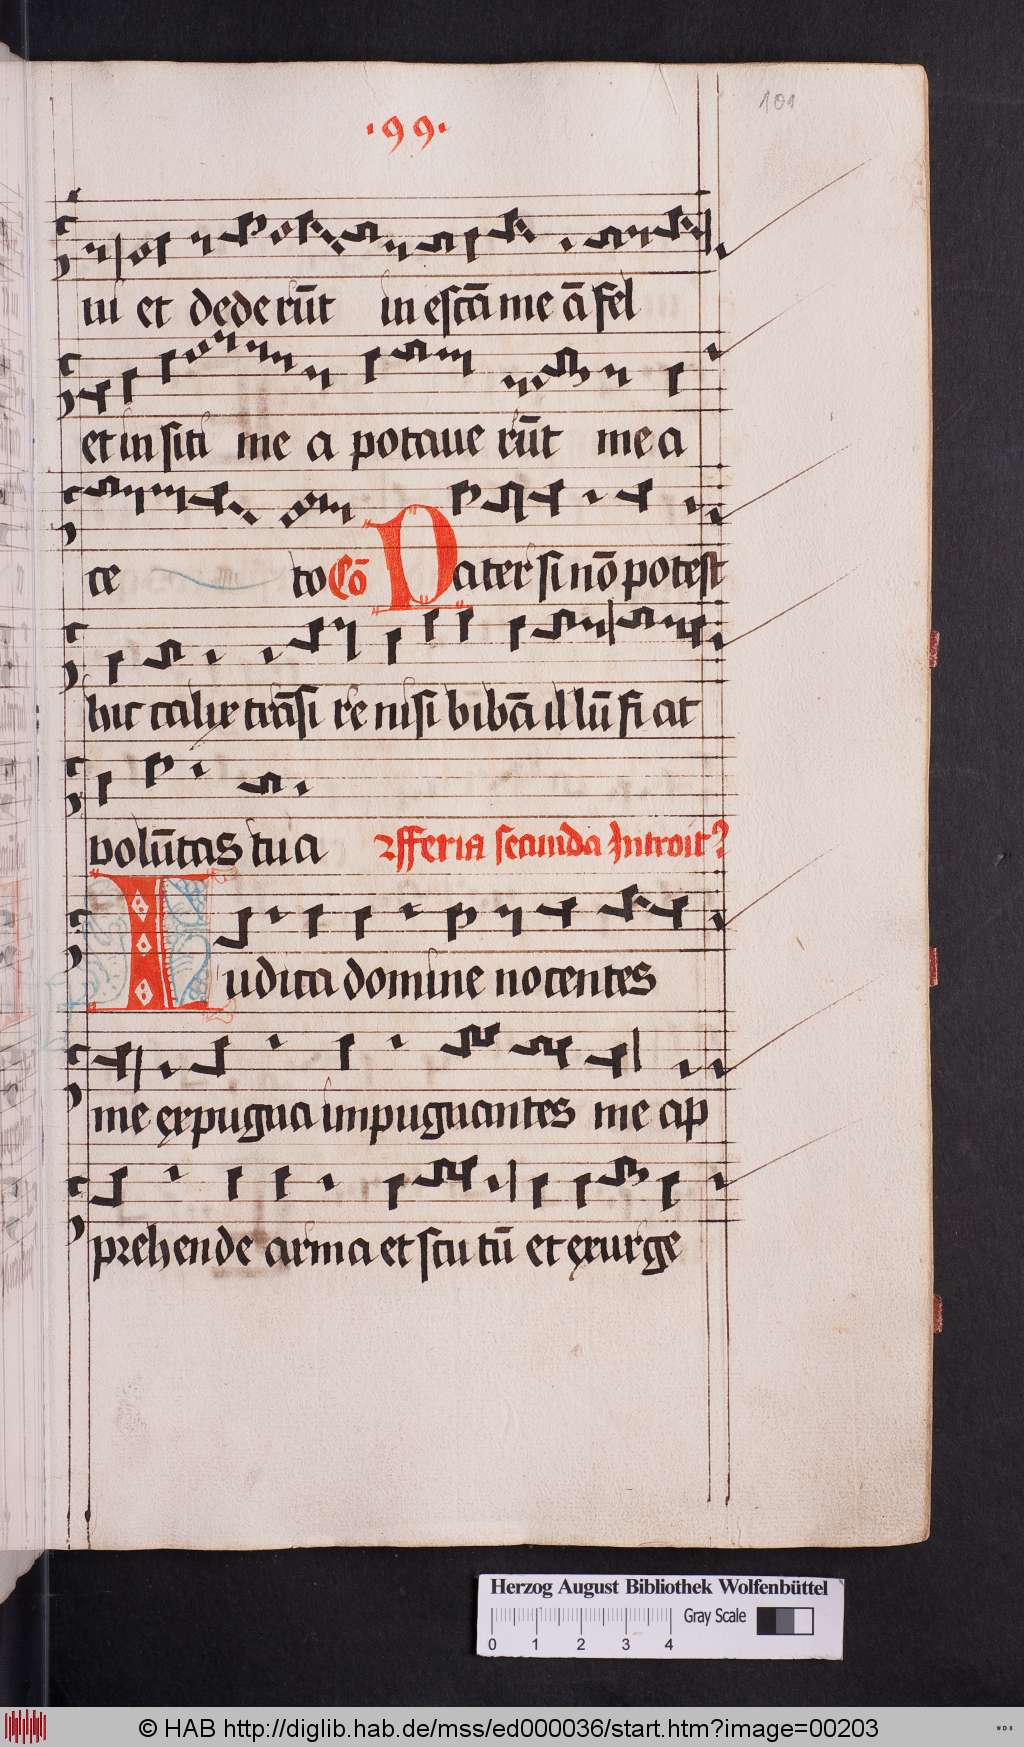 ·99·
101
ui et dederūt in escā me ā fel
et in siti me a potaue rūt me a
ce to Cō Pater si nō potest
hic calix trāsi re nisi bibā illū fi at
volūtas tua feria secunda Introit
Iudica domine nocentes
me expugna impugnantes me ap
prehende arma et scutū et exurge
Herzog August Bibliothek Wolfenbüttel
Gray Scale
0 1 2 3 4
© HAB http://diglib.hab.de/mss/ed000036/start.htm?image=00203